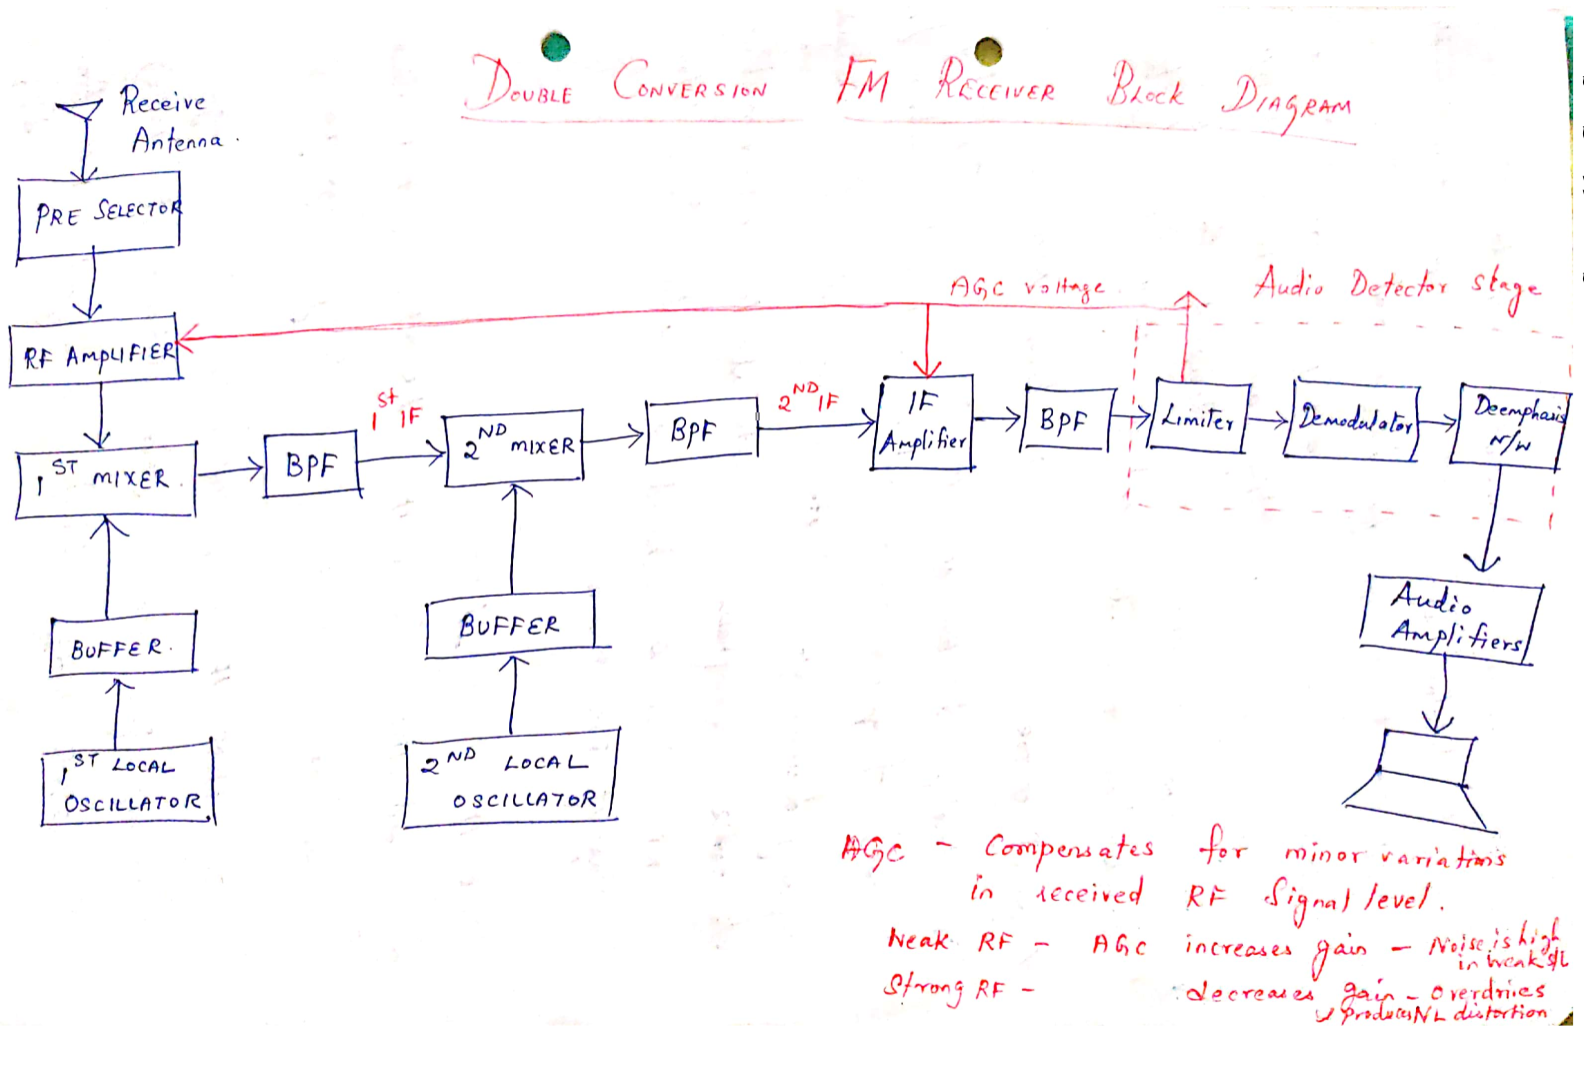 DOUBLE CONVERSION FM RECEIVER BLOCK DIAGRAM
Receive
Antenna.
PRE SELECTOR
RF AMPLIFIER
AGC voltage
Audio Detector stage
1ST MIXER.
BPF
1st IF
2ND MIXER
BPF
2ND IF
IF
Amplifier
BPF
Limiter
Demodulator
Deemphasis
N/W
BUFFER.
BUFFER
1ST LOCAL
OSCILLATOR
2ND LOCAL
OSCILLATOR
Audio
Amplifiers
AGC - Compensates for minor variations
in received RF Signal level.
Weak RF - AGC increases gain - Noise is high
in weak s/L
Strong RF - decreases gain - overdrives
produces NL distortion